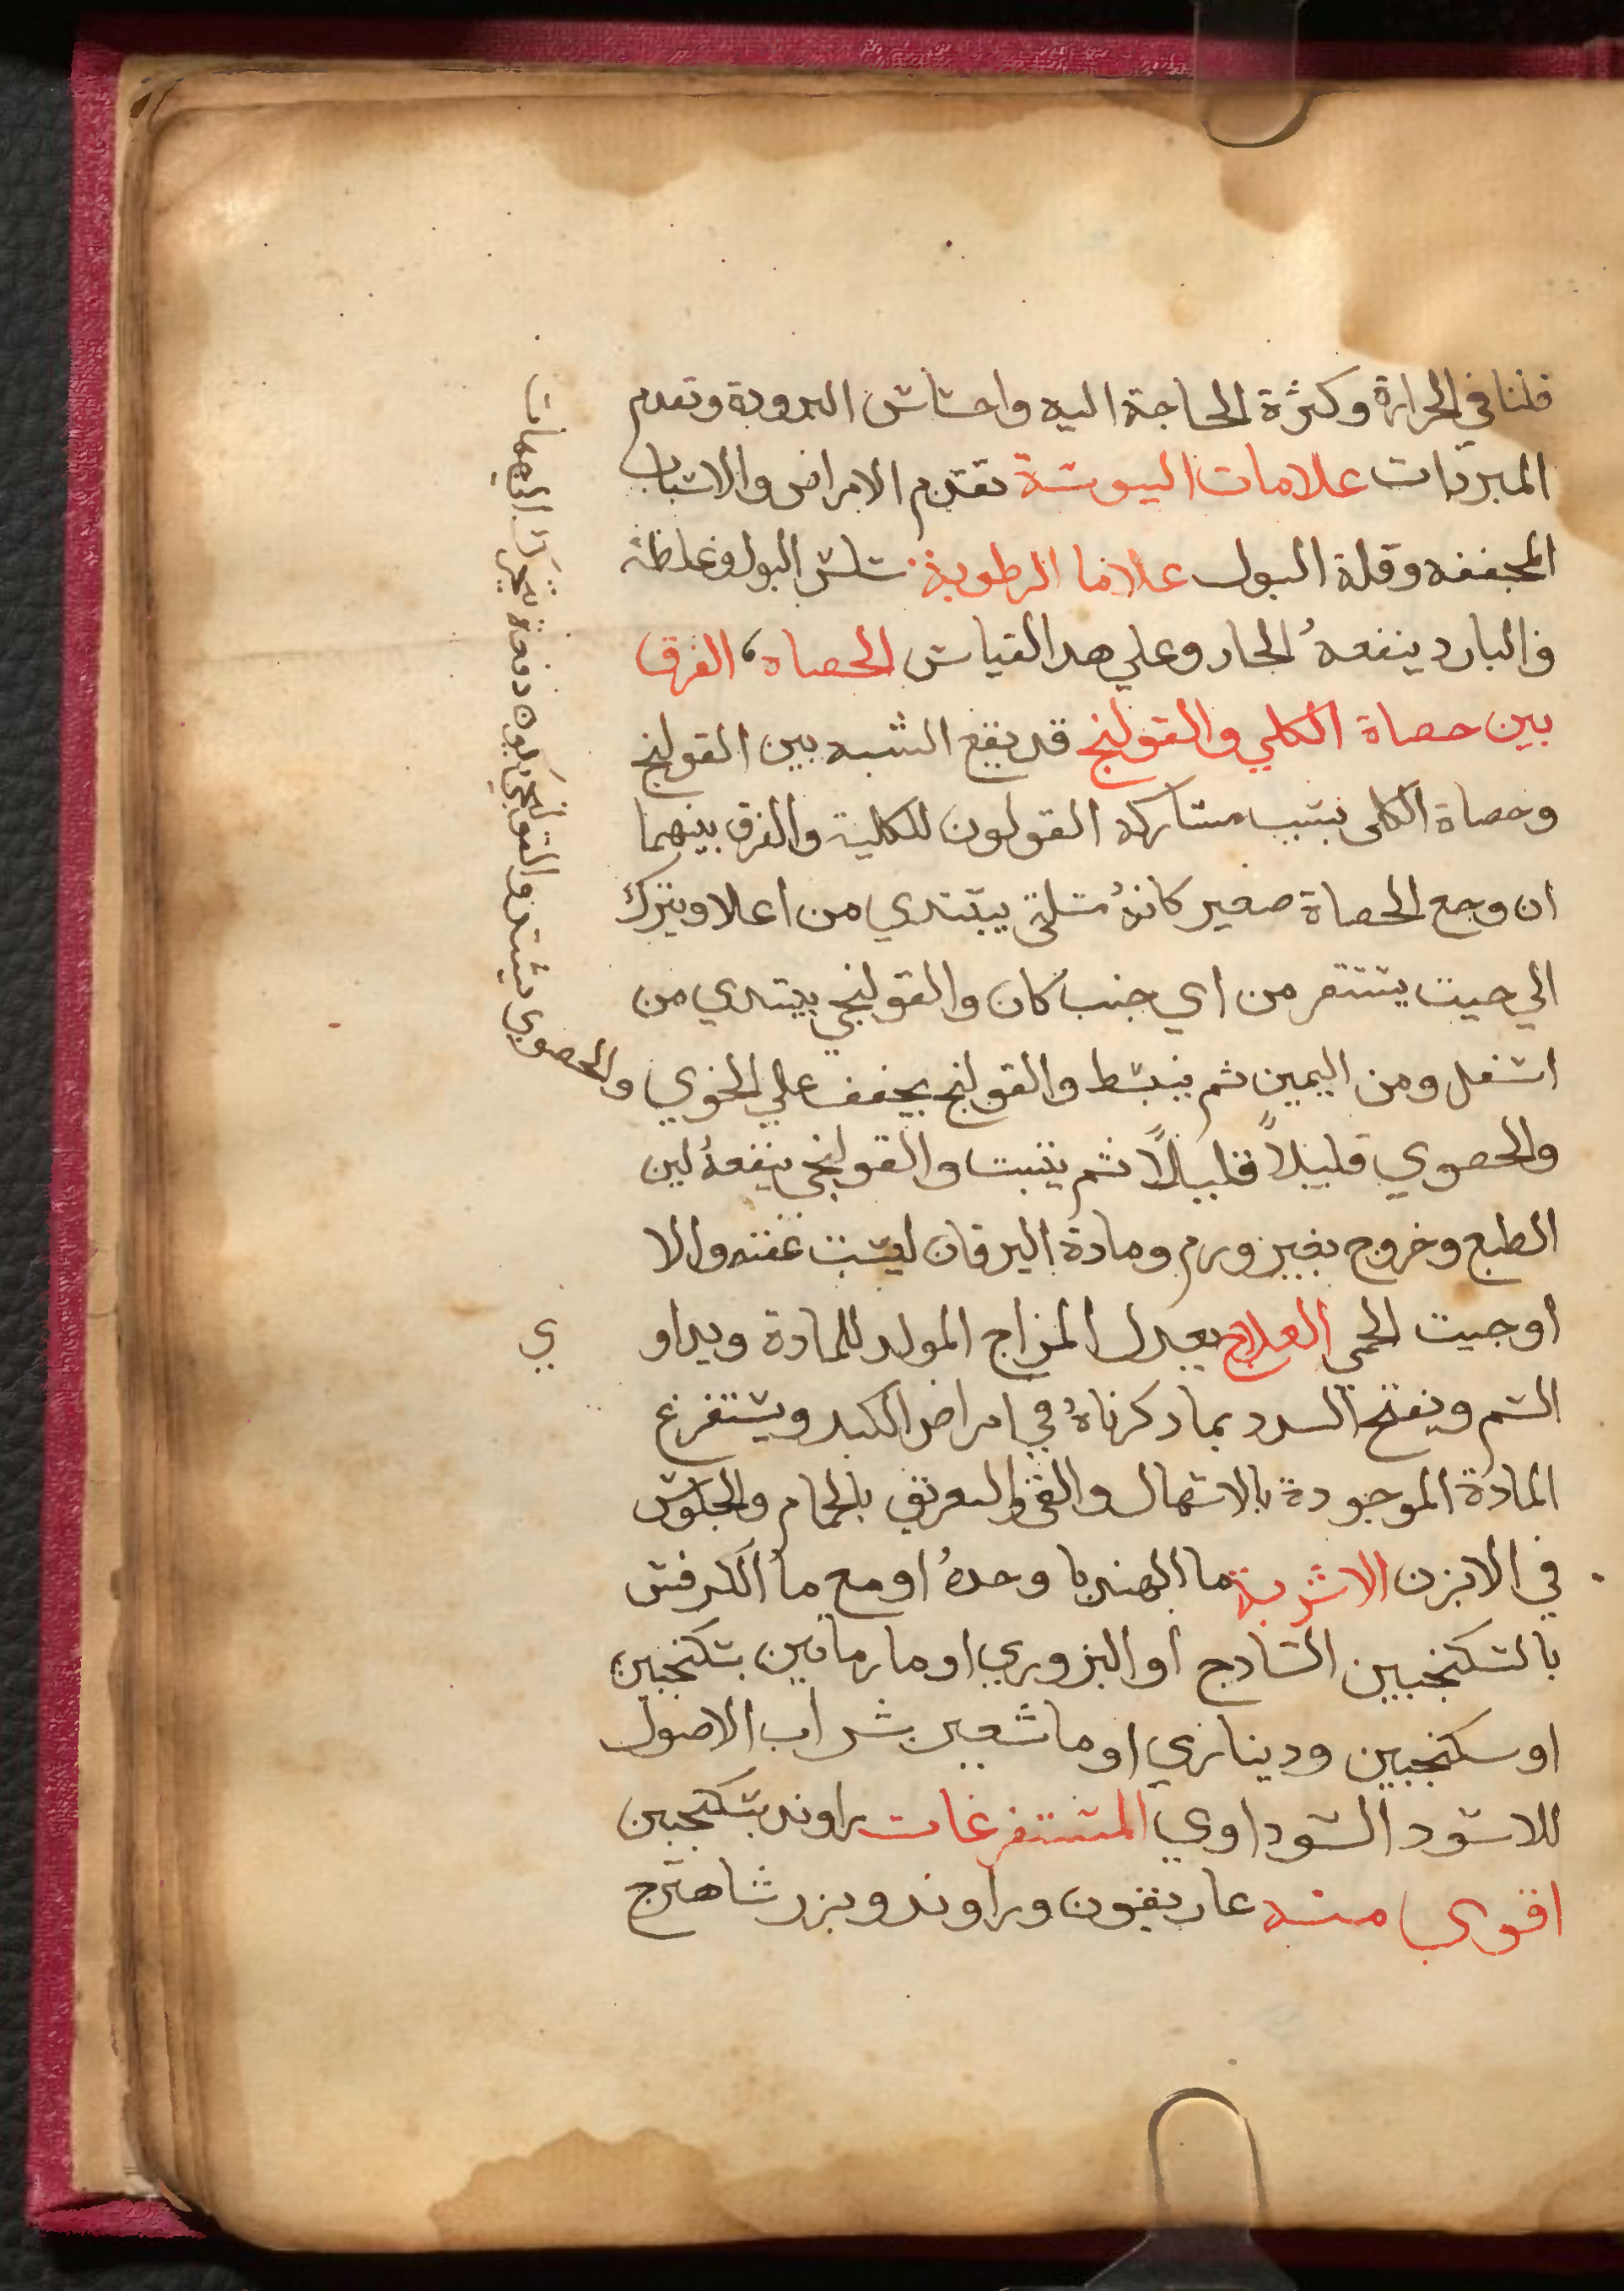 قلنا في الحرارة وكثرة الحاجة اليه واحساس البرودة وتقدم
المبردات علامات اليبوسة تقدم الامراض والاسباب
المجففه وقلة البول علامة الرطوبة سلس البول وغلظه
والبارد ينفعهُ الحار وعلي هدا القياس الحصاه، الفرق
بين حصاة الكلي والقولنج قد يقع الشبه بين القولنج
وحصاة الكلى بسبب مشاركه القولون للكلية والفرق بينهما
ان وجع الحصاة صغير كانهُ مسلة يبتدي من اعلا وينزل
الي حيث يستقر من اي جنب كان والقولنجي يبتدي من
اسفل ومن اليمين ثم ينبسط والقولنج يخفف علي الخوي والحصوي يشتد والقولنجي يكون دفعة
والحصوي قليلاً قليلاً ثم يثبت والقولنجي ينفعهُ لين
الطبع وخروج بغير ورم ومادة اليرقان ليست عفنه والا
اوجبت الحمي العلاج يعدل المزاج المولد للمادة ويداوي
السم ويفتح السدد بما دكرناهُ في امراض الكبد ويستفرغ
المادة الموجودة بالاسهال والقي والتعريق بالحمام والجلوس
في الابزن الاشربة ما الهندبا وحدهُ او مع ما الكرفس
بالسكنجبين السادج او البزوري او ما رمانين بسكنجبين
او سكنجبين وديناري او ما شعير بشراب الاصول
للاسود السوداوي المستفرغات راوند بسكنجبين
اقوي منه غاريقون وراوند وبزر شاهترج